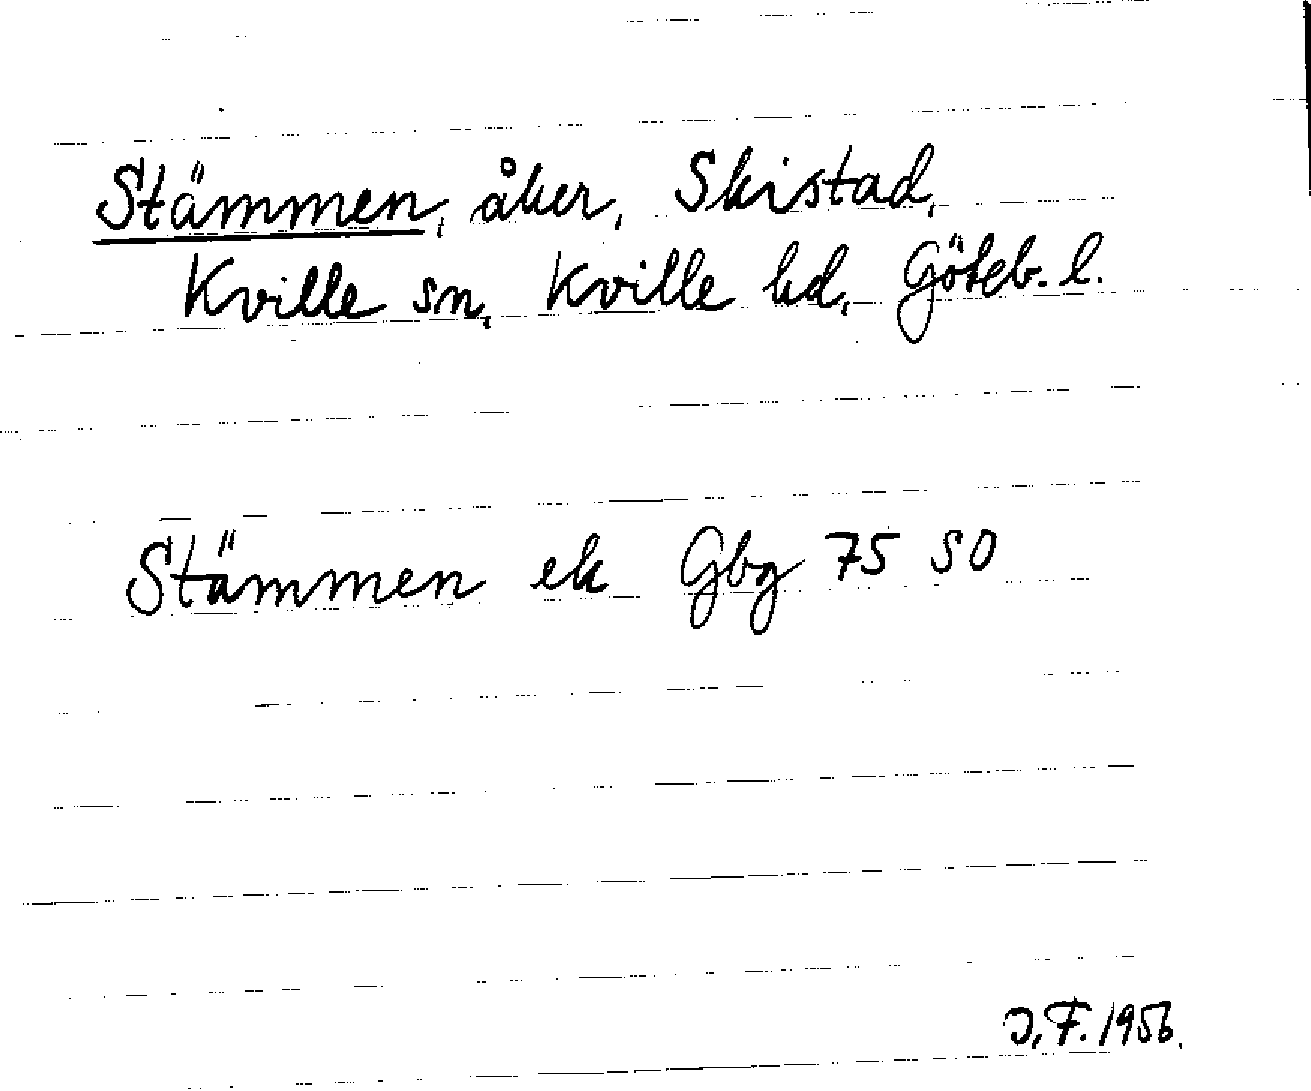 Stämmen, åker, Skistad,
Kville sn, Kville hd, Göteb. l.
Stämmen ek Gbg 75 SO
J.F. 1956.